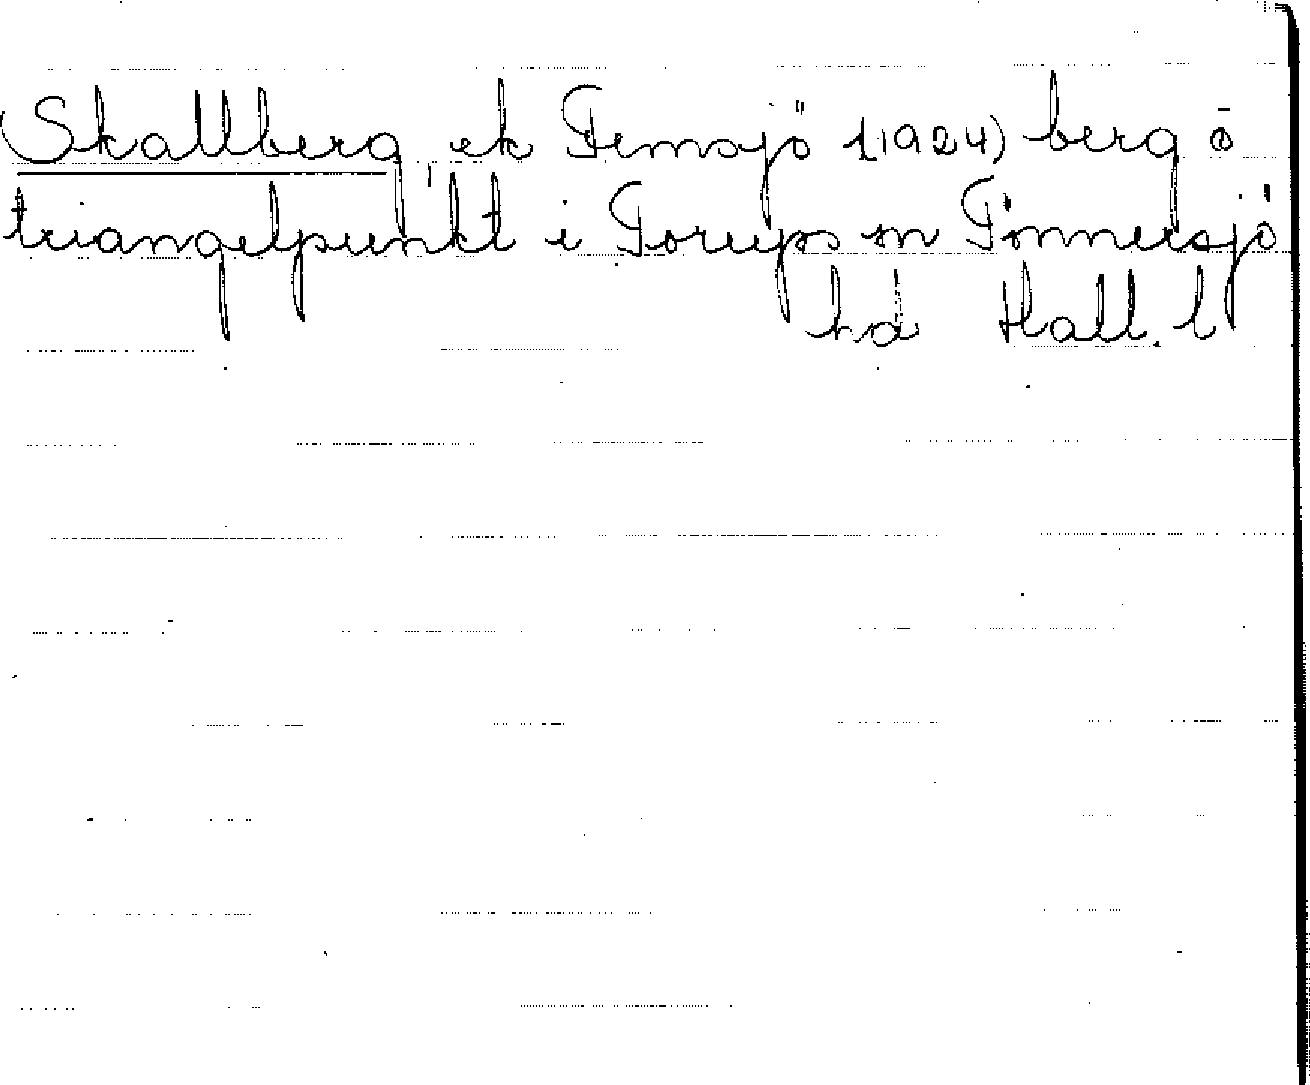 Skallberg, ek Femsjö 1(1924) berg o
triangelpunkt i Torups sn Tönnersjö
hd Hall. l